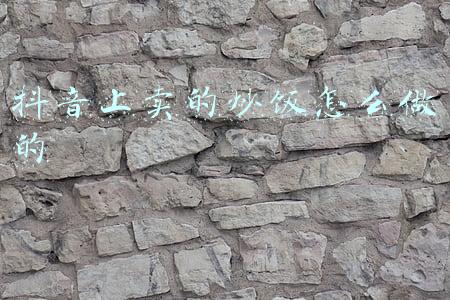 抖音上卖的炒饭怎么做
的